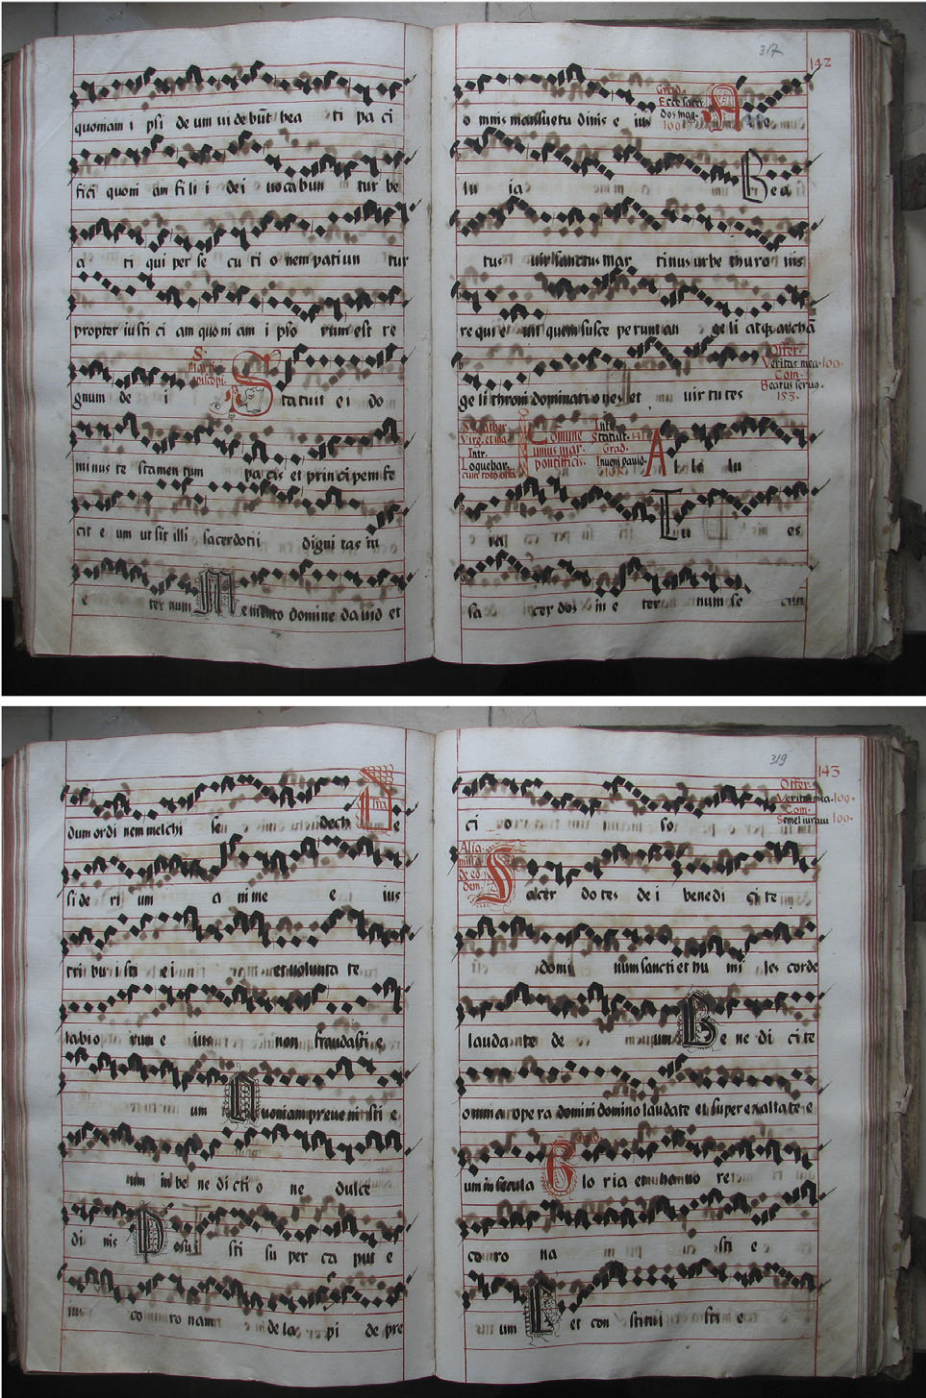 quoniam i psi de um uidebūt bea ti pa ci
fici quoni am fi li i dei uocabun tur be
a ti qui per se cu ti o nem patiun tur
propter iusti ci am quo ni am i pso rum est re
gnum de i
S.
Statuit ei do
minus te stamen tum pa cis et prin ci pem fe
cit e um ut sit illi sacerdotii digni tas in
e ter num Memento domine dauid et
317
142
o mnis mansuetu dinis e ius
Grad.
Ecce sacer
dos mag.
A lle
lu ia Bea
tus uir sanctus mar tinus urbe thuro nis
re qui e uit quem susce pe runt an ge li atq archā
ge li throni dominati o nes et uir tu tes
Offer.
Veritas mea. 100.
Com.
Beatus seruus.
153.
Intr.
Loquebar.
Comune
unius mar.
pontificis.
Intr.
Statuit.
Grad.
Inueni dauid.
Al le lu
ia Tu es
sa cer dos in e ter num se cun
dum ordi nem melchi se dech De
si de ri um a ni me e ius
tri bu i sti e i et uolunta te
labio rum e ius non fraudasti e
um Quoniam preue ni sti e
um in be ne di cti o ne dulce
di nis Posui sti su per ca put e
ius co ro nam de la pi de pre
319
143
ci o so
Offer.
Veritas mea. 100.
Com.
Semel iuraui 100.
Alia
missa
de eo
dem.
Sacer do tes de i bene di ci te
domi num sancti et hu mi les corde
laudate de um Be ne di ci te
omnia opera domini domino laudate et super exaltate e
um in secula Glo ria et ho no re
co ro na sti e
um Et con stitui sti e